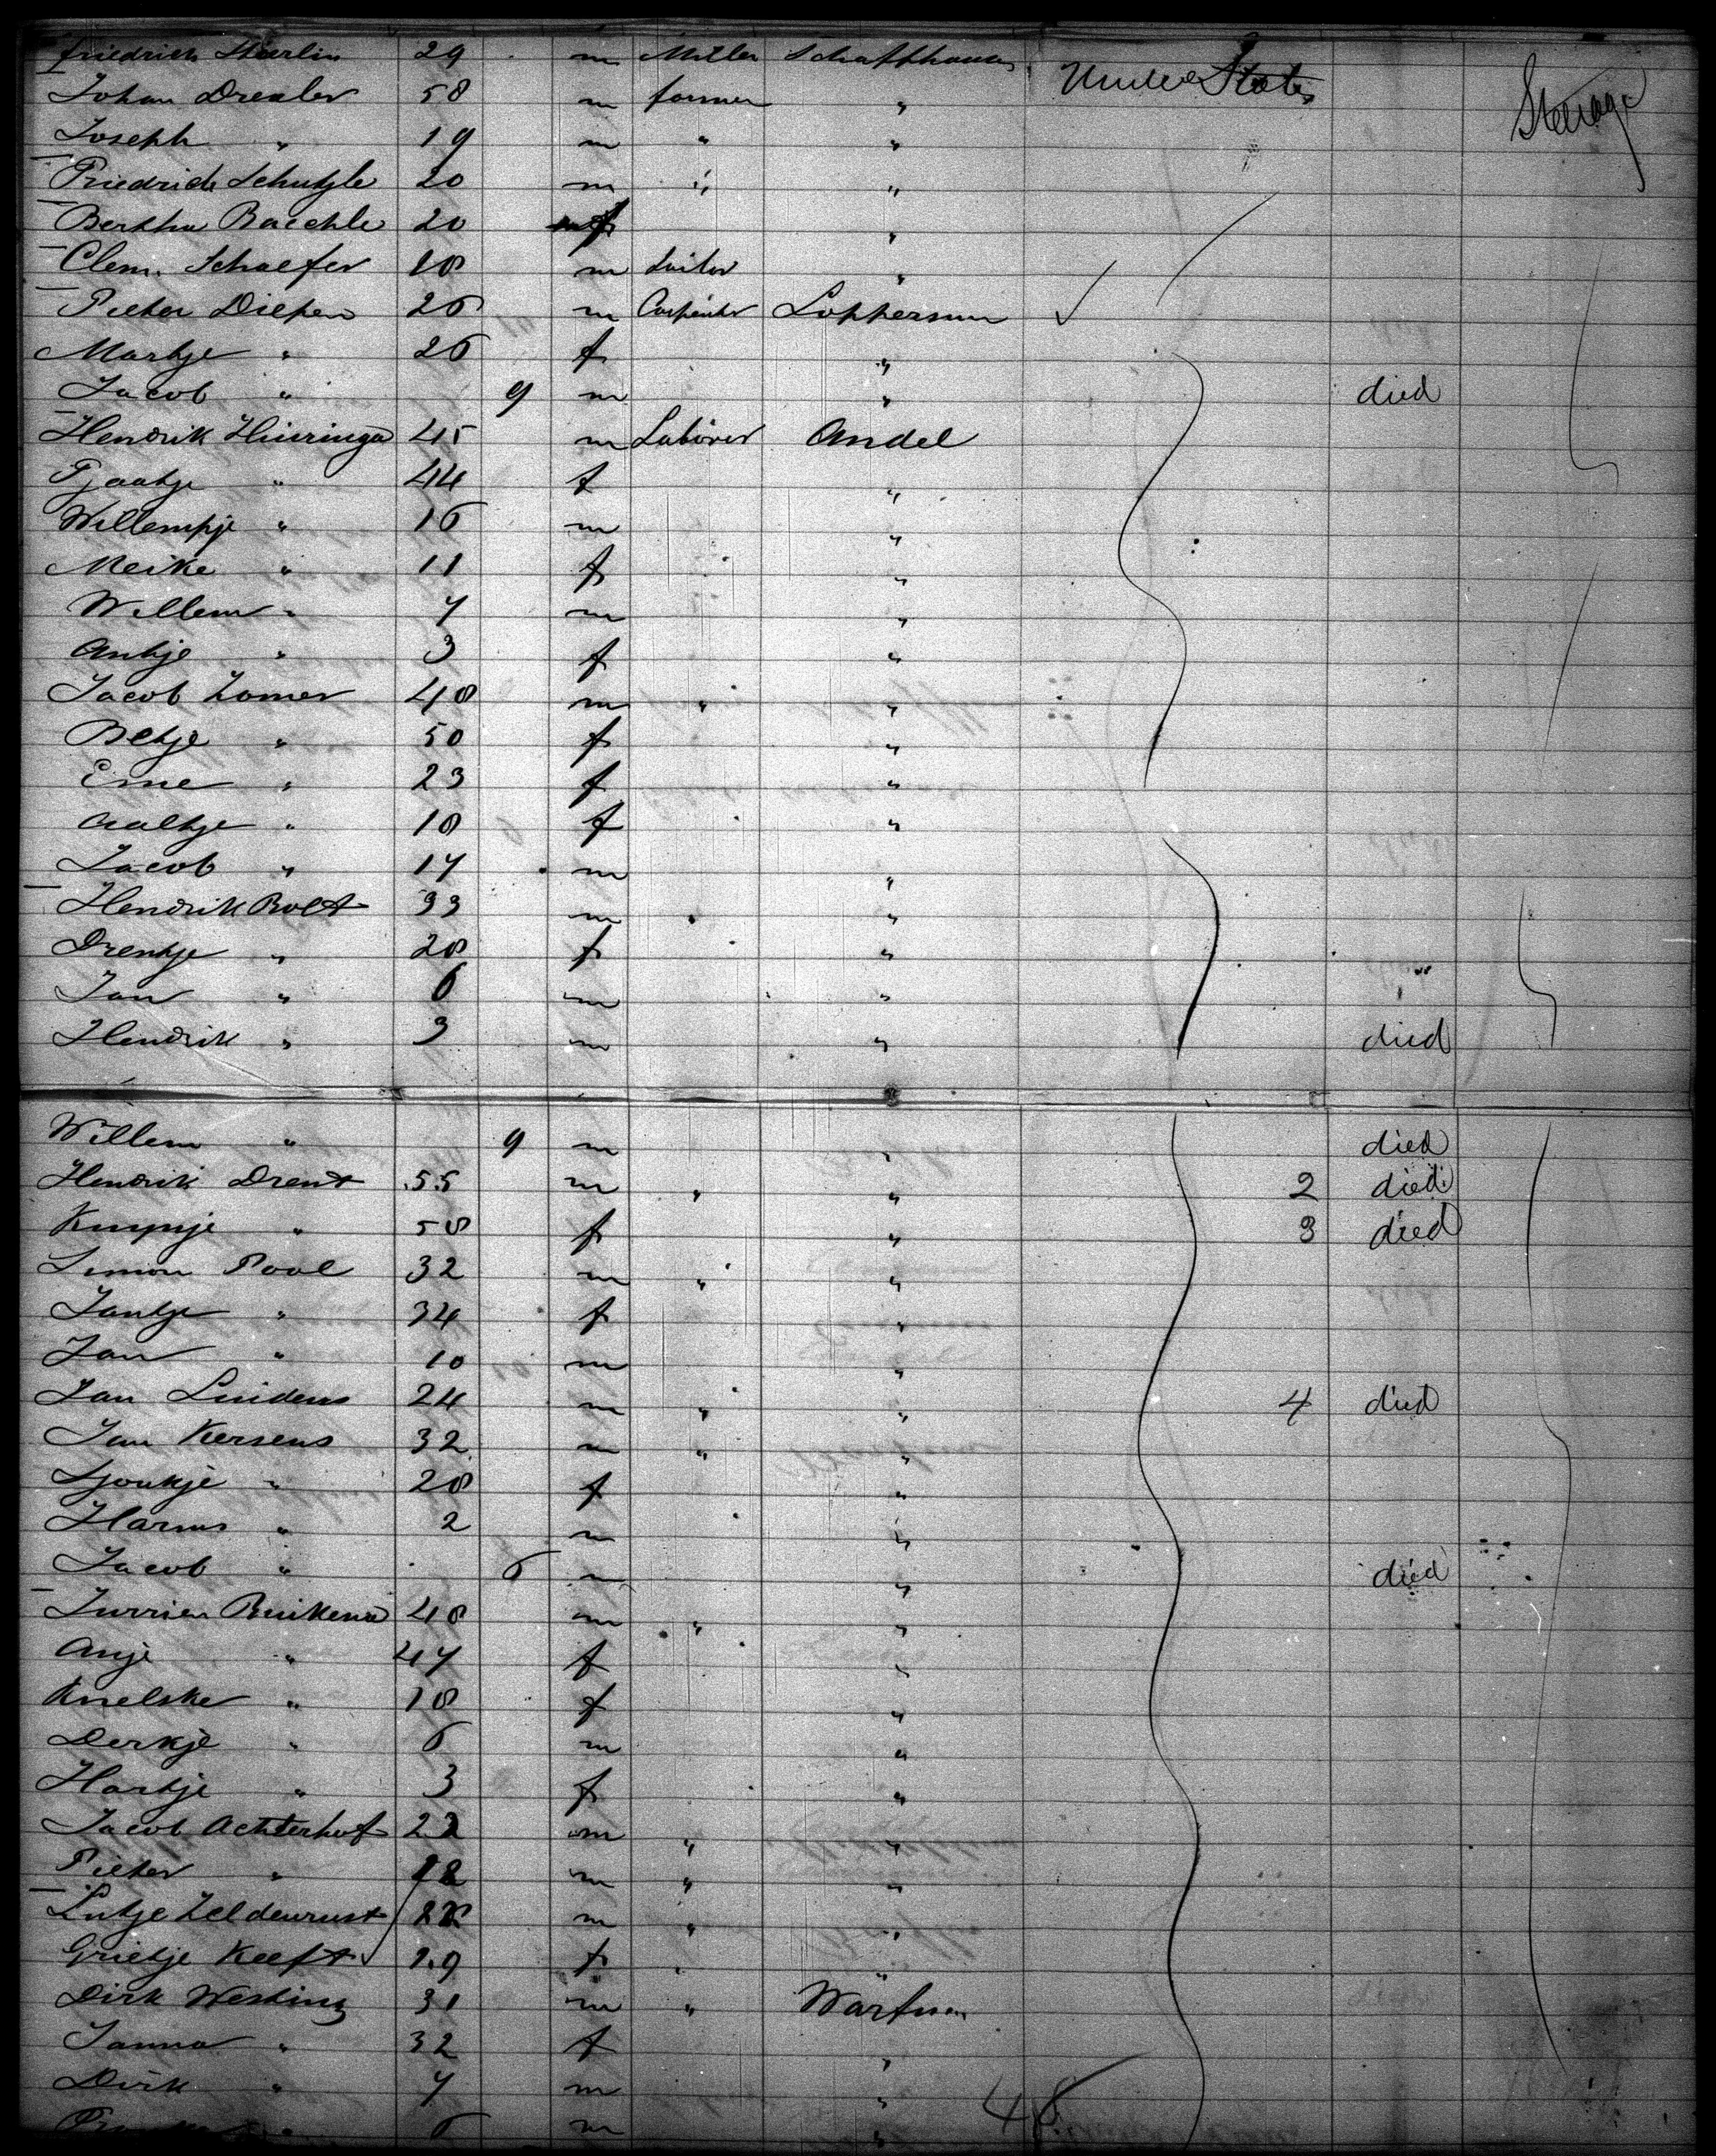 Friedrich Stierlin 29 m Miller Schaffhausen
Johan Drexler 58 m farmer " United States Steerage
Joseph " 19 m " "
Friedrich Schutzle 20 m " "
Bertha Baechle 20 f "
Clem. Schaefer 18 m Tailor "
Pieter Diepen 26 m Carpenter Loppersum
Martje " 26 f "
Jacob " 9 m " died
Hendrik Huiringa 45 m Laborer Andel
Tjaatje " 44 f "
Willempje " 16 m "
Meike " 11 f "
Willem " 7 m "
Antje " 3 f "
Jacob Zomer 48 m " "
Betje " 50 f "
Eme " 23 f "
Aaltje " 18 f "
Jacob " 17 m "
Hendrik Bolt 33 m " "
Drentje " 28 f "
Jan " 6 m "
Hendrik " 3 m " died
Willem " 9 m " died
Hendrik Drent 55 m " " 2 died
" 58 f " 3 died
Simon Pool 32 m " "
Jantje " 34 f "
Jan " 10 m "
Jan Luidens 24 m " " 4 died
Jan Kersens 32 m " "
Sjoukje " 28 f "
Harms " 2 m "
Jacob " 6 m " died
Jurrien Buikema 48 m " "
Anje " 47 f "
Knelske " 18 f "
Derkje " 6 m "
Hartje " 3 f "
Jacob Achterhof 22 m " "
Pieter " 18 m " "
Lutje Zeldenrust m " "
Grietje Keeft 19 f " "
Dirk Westing 31 m " Warfum
Janna " 32 f "
Dirk " 7 m "
" 6 m " 48